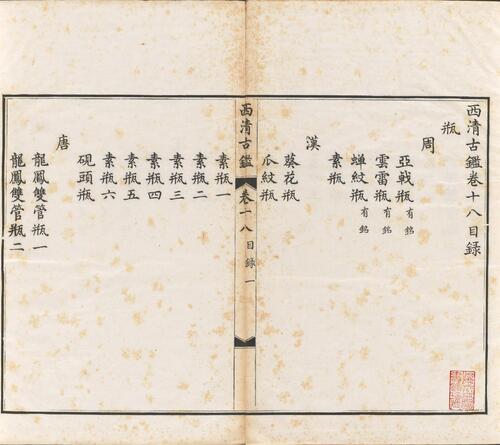 西清古鑑卷十八目録
瓶
周
亞戟瓶有銘
雲雷瓶有銘
蟬紋瓶有銘
素瓶
漢
葵花瓶
瓜紋瓶
西清古鑑 卷十八目録 一
素瓶一
素瓶二
素瓶三
素瓶四
素瓶五
素瓶六
硯頭瓶
唐
龍鳳雙管瓶一
龍鳳雙管瓶二